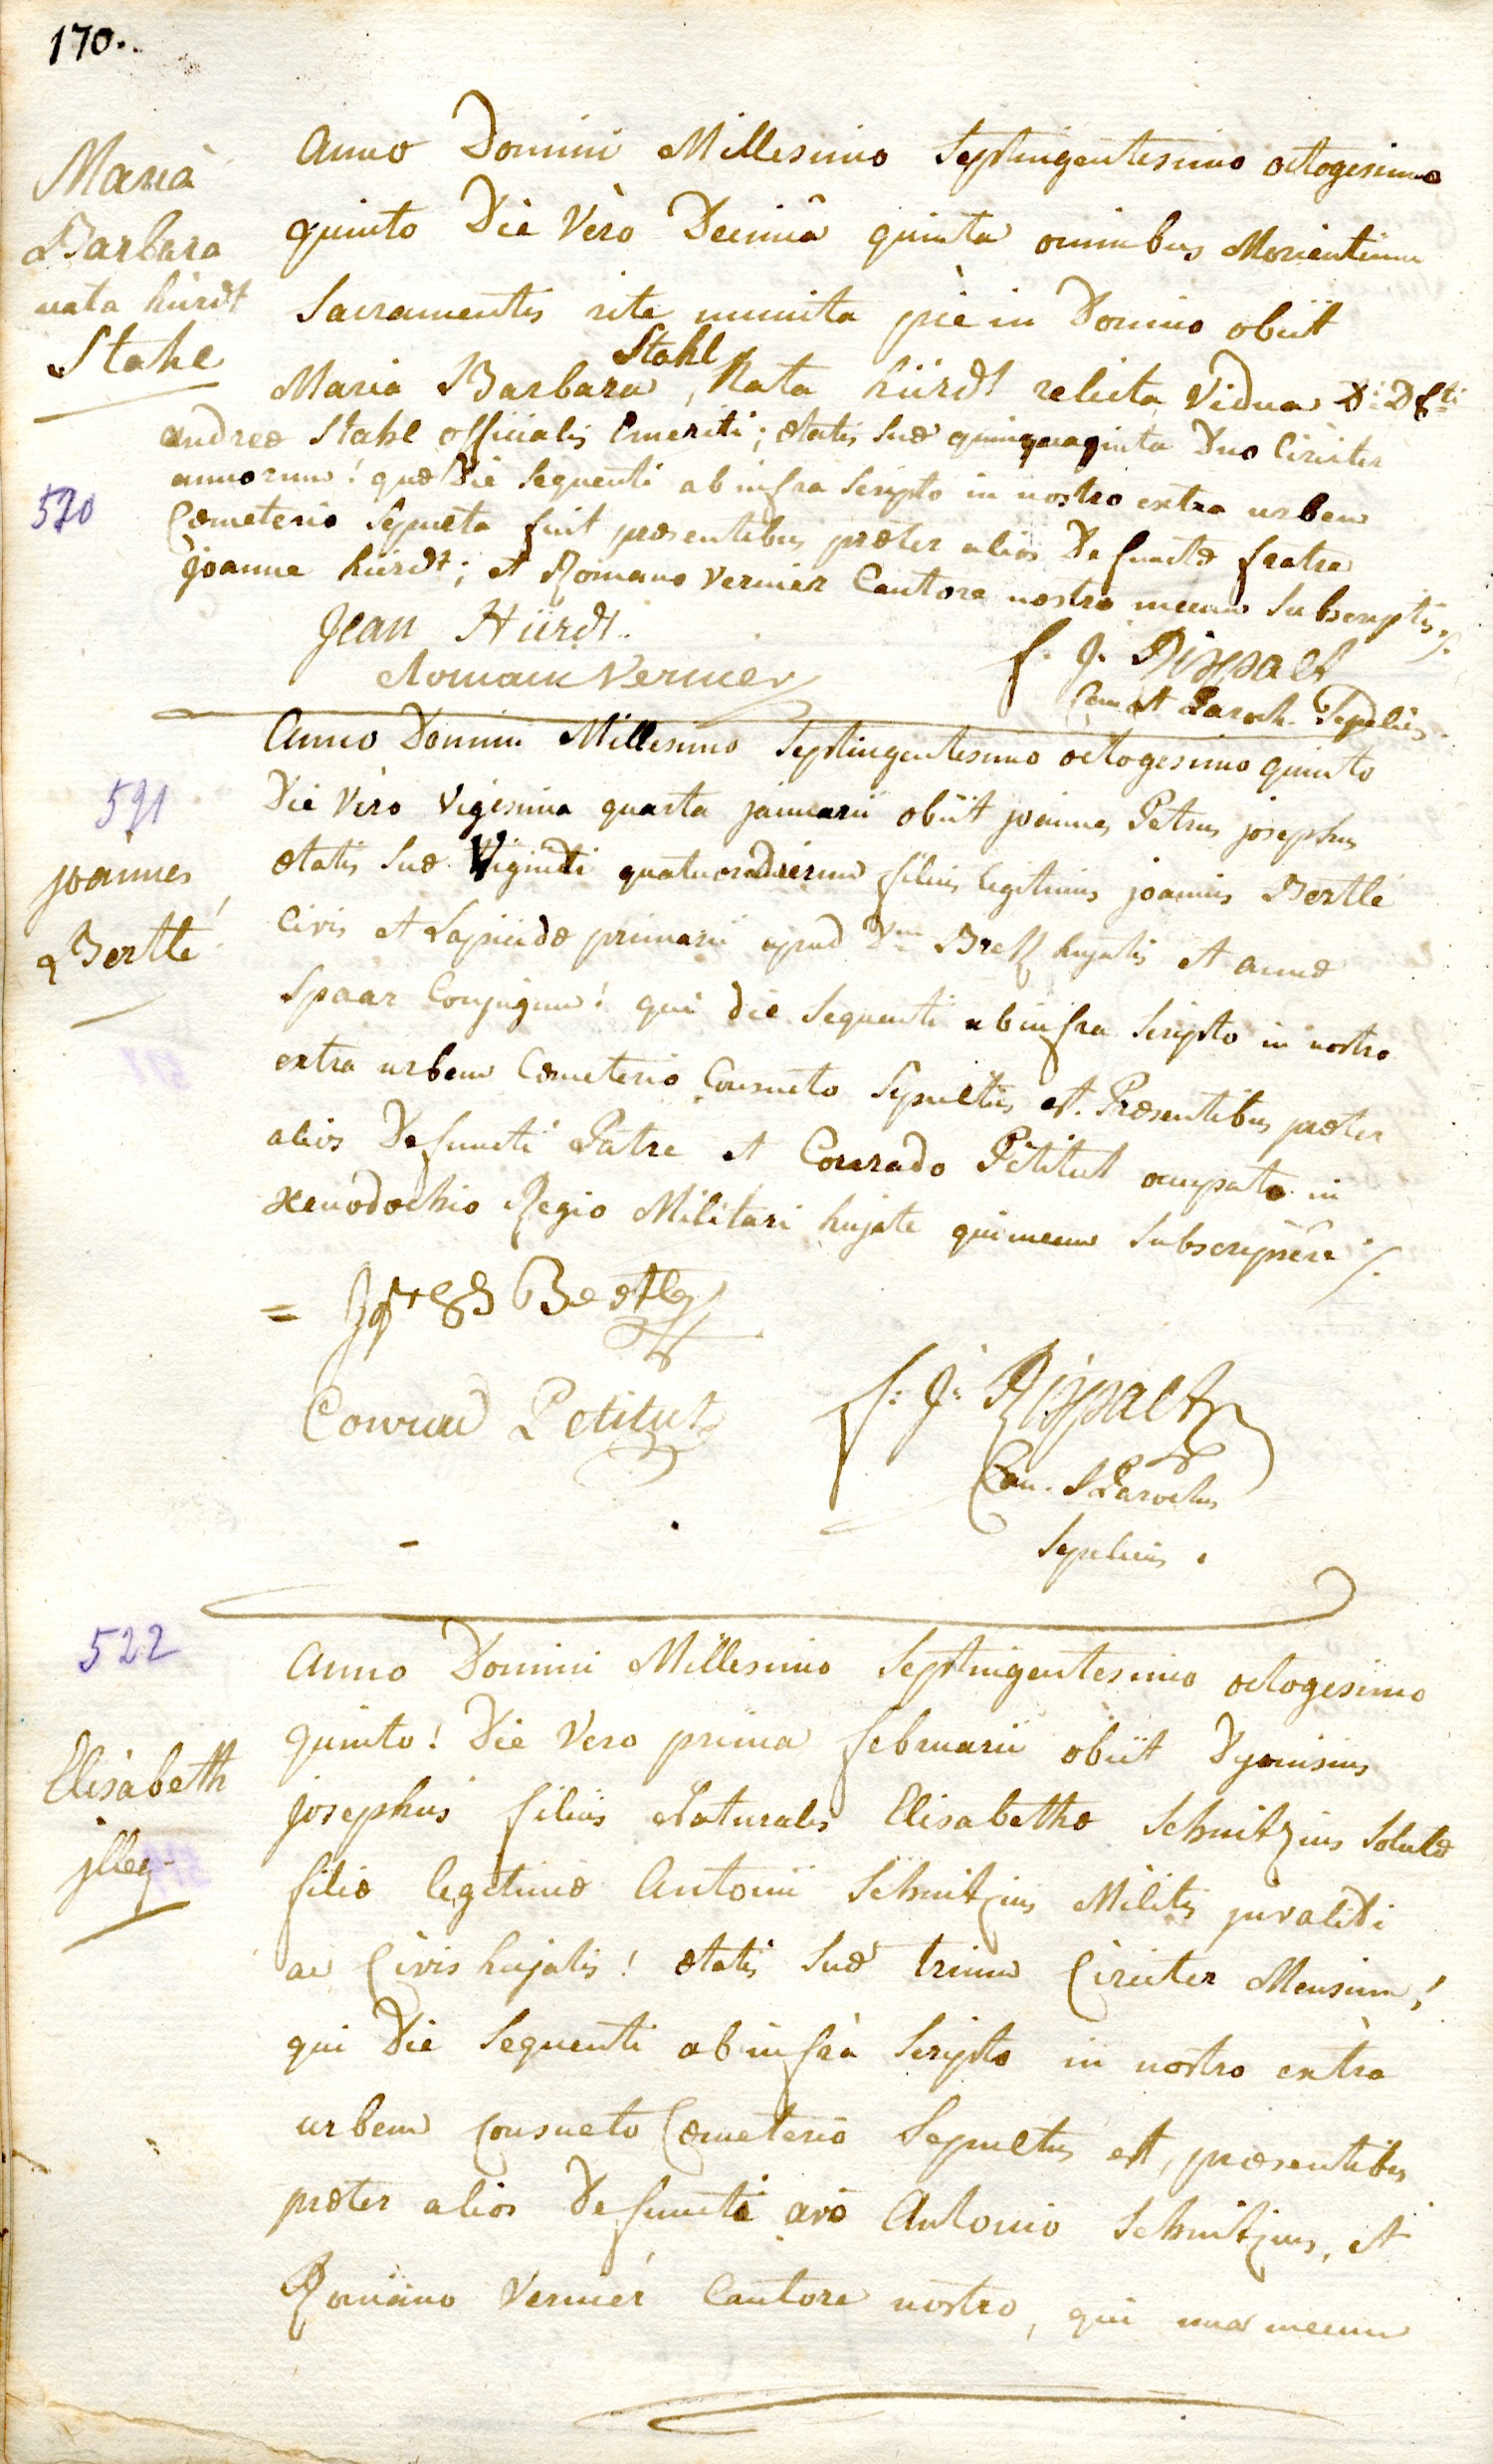 170.
Maria
Barbara
nata hürdt
Stahl
520
Anno Domini Millesimo Septingentesimo octogesimo
quinto Die Vero Decimâ quinta omnibus Morientium
Sacramentis rite munita piè in Domino obiit
Stahl
Maria Barbara, Nata hürdt relicta Vidua D: Dfti
andreæ Stahl officialis Emeriti; ætatis suæ quinquaginta Duo Circiter
annorum! quæ Die sequenti ab infra scripto in nostro extra urbem
Cœmeterio sepulta fuit præsentibus præter alios Defunctæ fratre
joanne hürdt; et Romano Vernier Cantore nostro mecum subscriptis ./.
Jean Hürdt.
Romain Vernier
f. J. Rispalt
Can et Paroch. Sepelien.
521
joannes
Bertlé
Anno Domini Millesimo Septingentesimo octogesimo quinto
Die Vero Vigesima quarta januarii obiit joannes Petrus josephus
ætatis suæ Viginti quatuor dierum filius legitimus joannis Bertlé
Civis et Lapicidæ primarii apud Dm hujatis et annæ
Spaar Conjugum! qui die sequenti ab infra scripto in nostro
extra urbem Cœmeterio Consueto sepultus est. Præsentibus præter
alios Defuncti Patre et Conrado Petitut occupato in
Xenodochio Regio Militari hujate qui mecum subscripsêre ./.
= Bertle
Conrad Petitut
f: J: Rispalt
Can. et Parochus
Sepeliens .
522
Elisabeth
jlleg.
Anno Domini Millesimo Septingentesimo octogesimo
quinto! Die Vero prima februarii obiit Dyonisius
josephus filius Naturalis Elisabethæ Schnitzius Solutæ
filiæ legitimæ Antonii Schnitzius Militis jnvalidi
ac Civis hujatis! ætatis suæ trium Circiter Mensium!
qui Die sequenti ab infrà scripto in nostro extra
urbem Consueto Cœmeterio Sepultus est, præsentibus
præter alios Defuncti avo Antonio Schnitzius, et
Romano Vernier Cantore nostro, qui una mecum